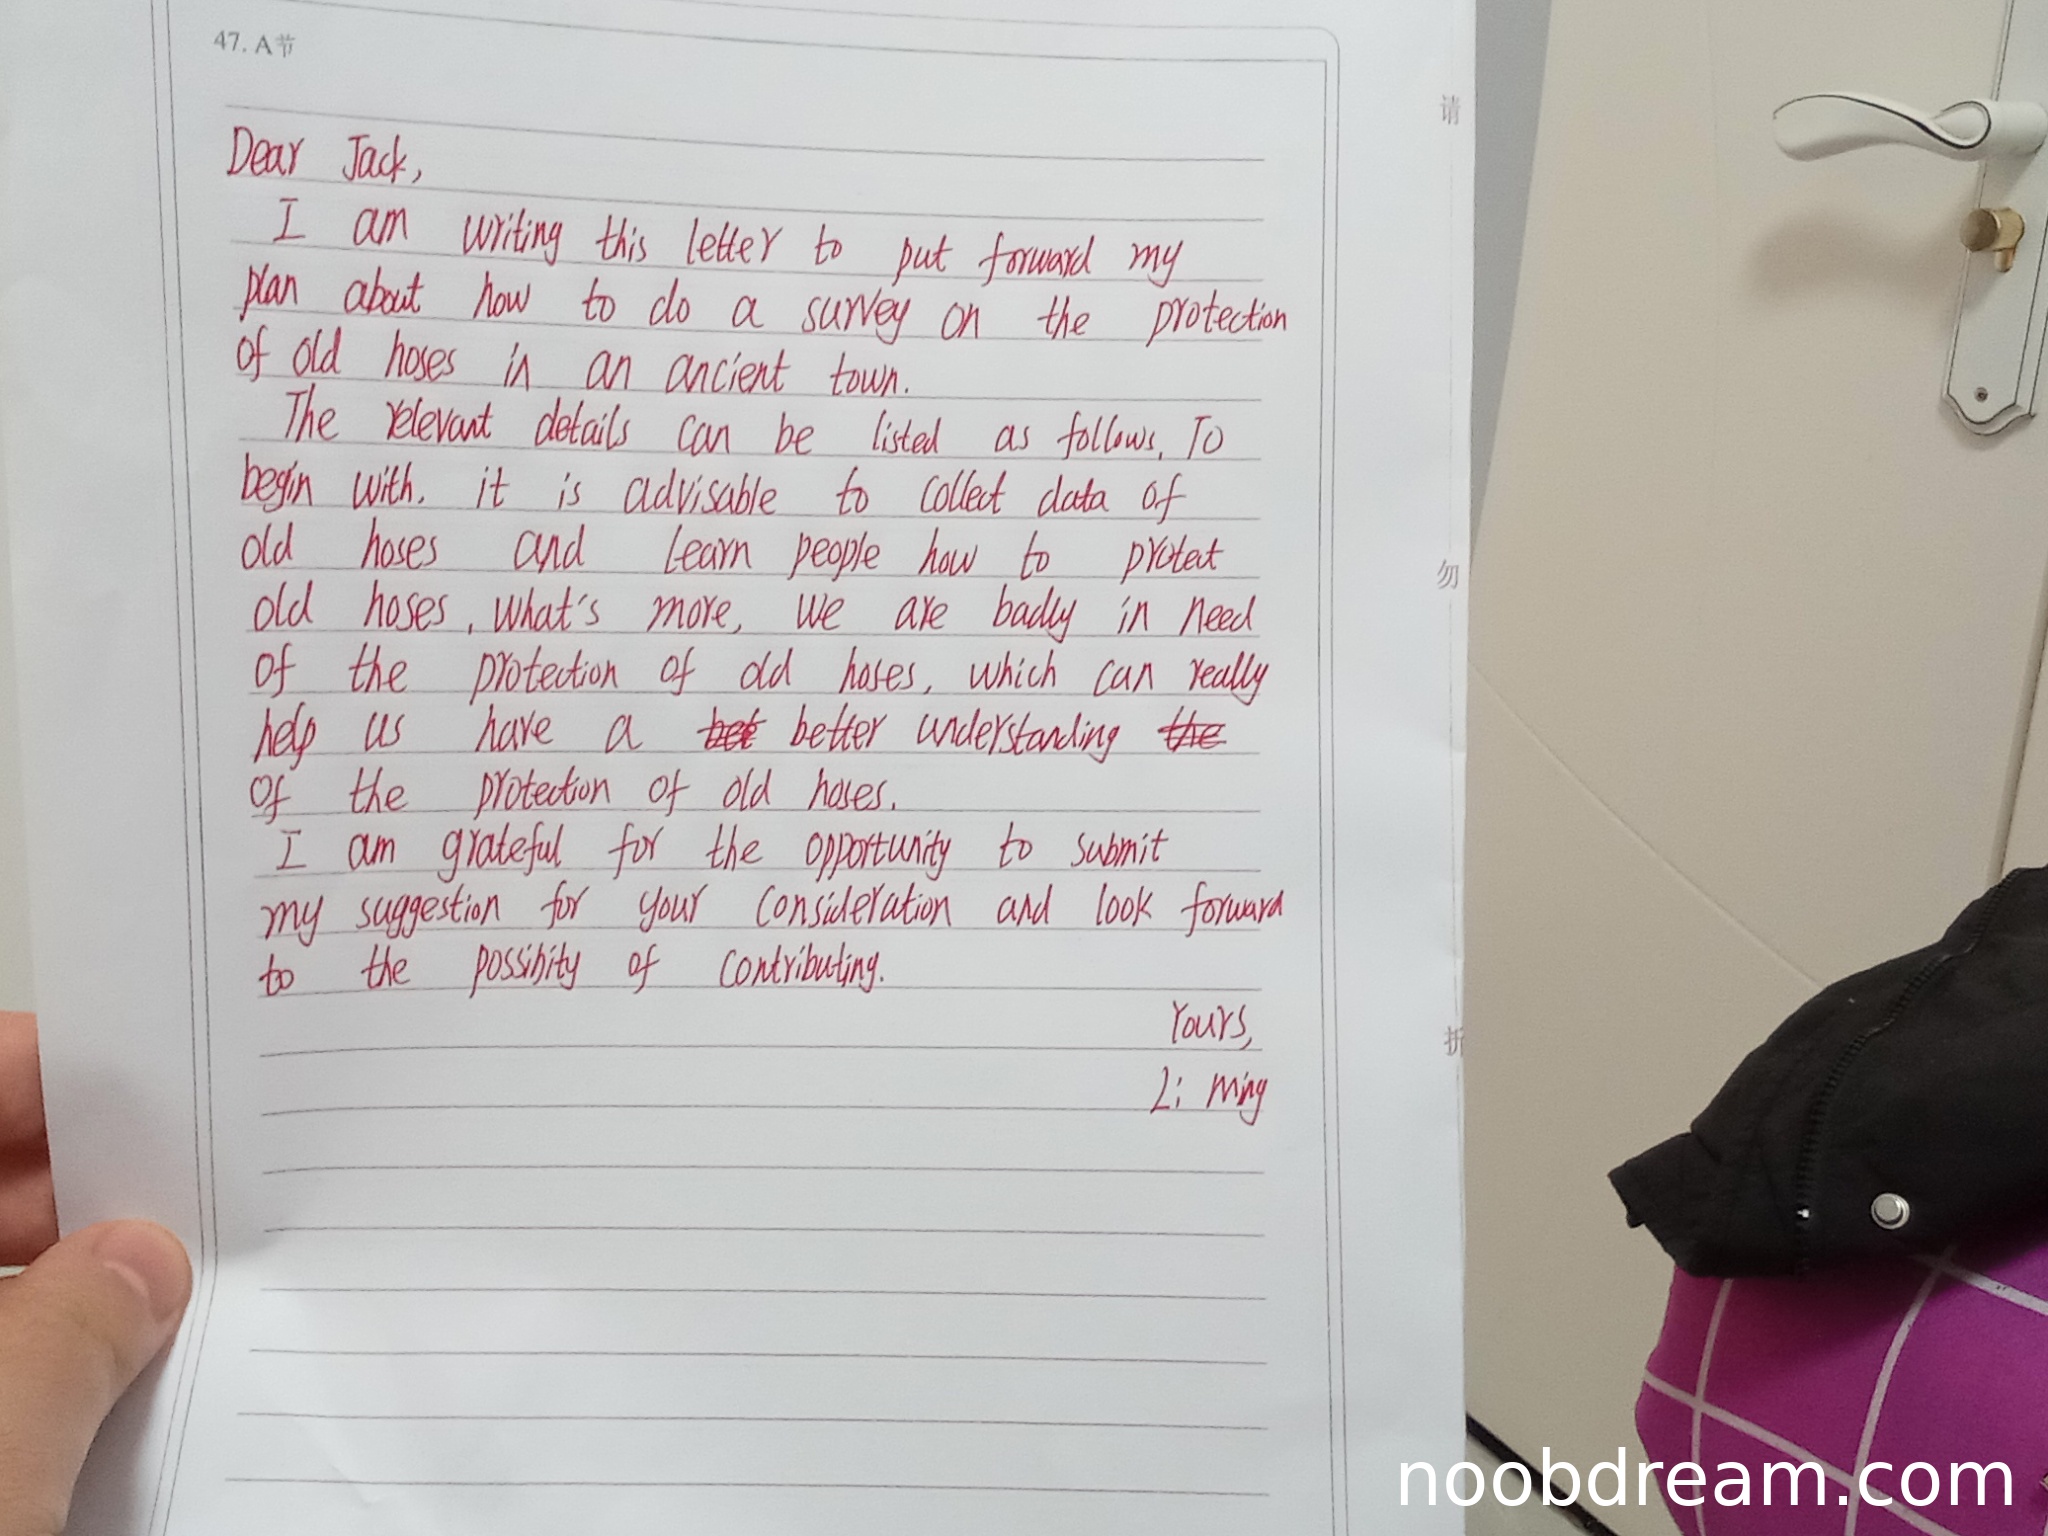 47. A节
Dear Jack,
I am writing this letter to put forward my
plan about how to do a survey on the protection
of old hoses in an ancient town.
The relevant details can be listed as follows. To
begin with. it is advisable to collect data of
old hoses and learn people how to protect
old hoses. What's more, we are badly in need
of the protection of old hoses, which can really
help us have a bet better understanding the
of the protection of old hoses.
I am grateful for the opportunity to submit
my suggestion for your consideration and look forward
to the possibity of contributing.
Yours,
Li ming
请
勿
折
noobdream.com